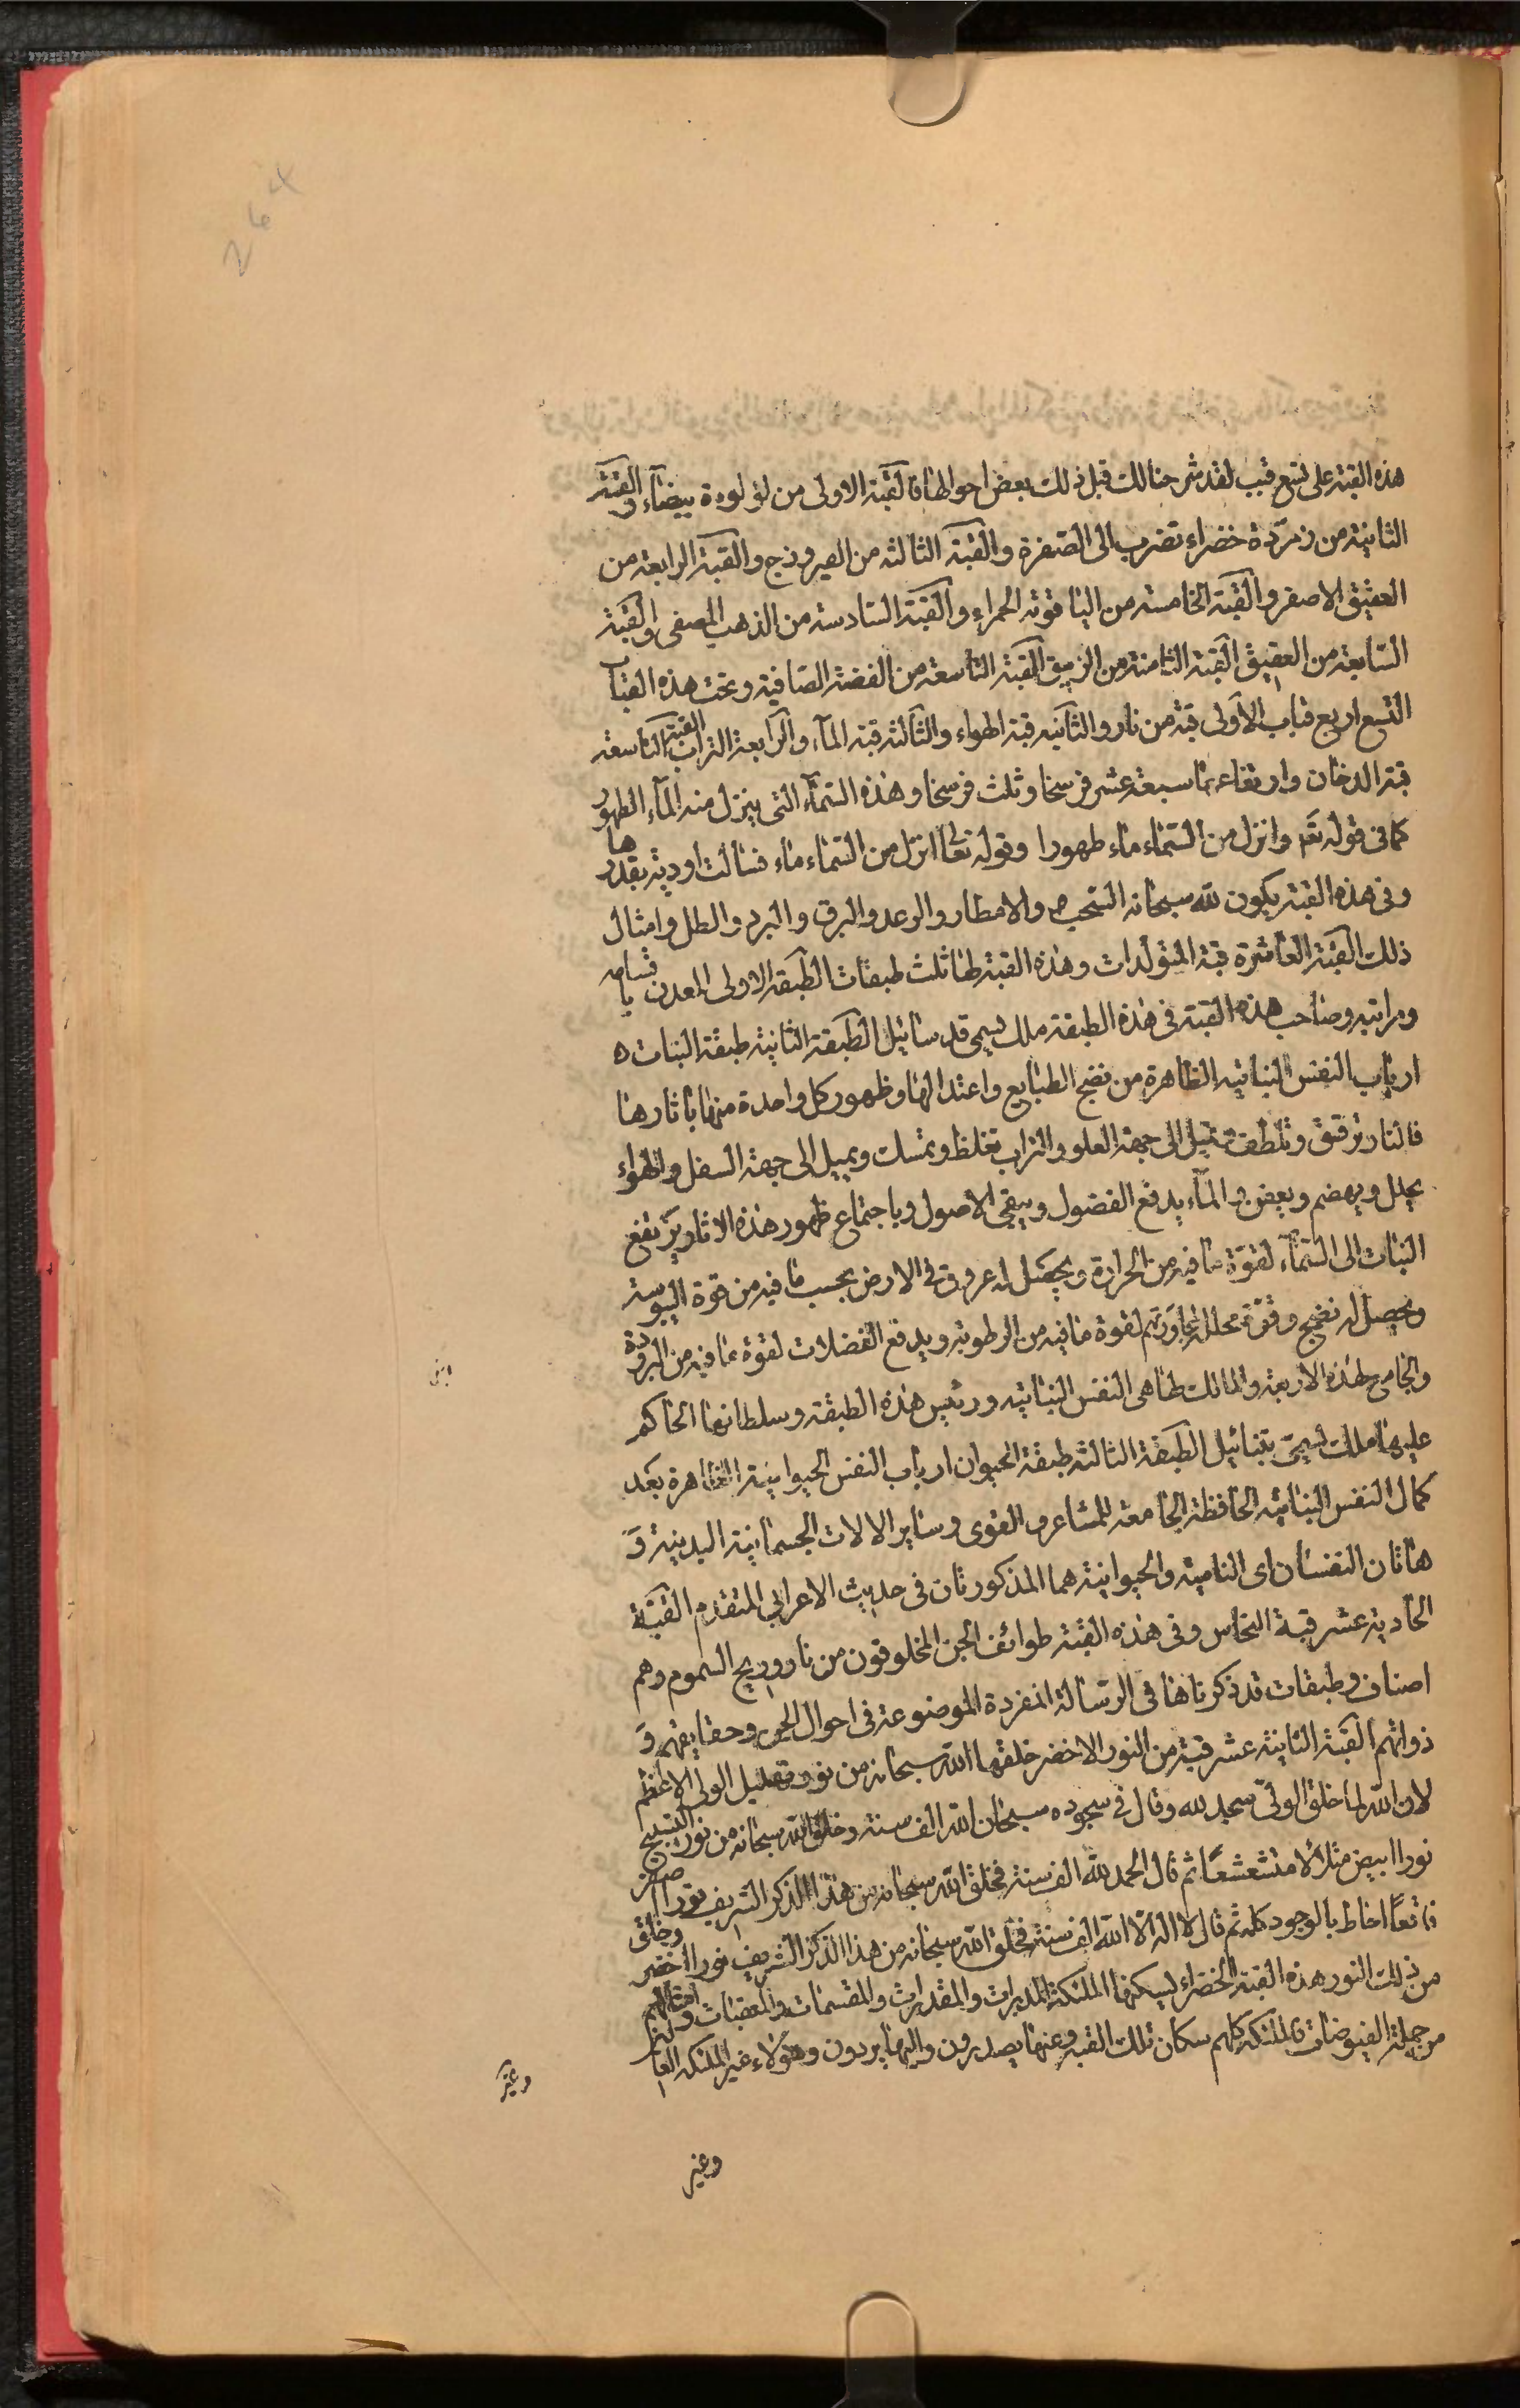 هذه القبة على تسع قبب لقد شرحنا لك قبل ذلك بعض احوالها فالقبة الاولى من لؤلوءة بيضآء والقبة
الثانية من زمردة خضراء تضرب الى الصفرة والقبة الثالثة من الفيروزج والقبة الرابعة من
العقيق الاصفر والقبة الخامسة من الياقوتة الحمراء والقبة السادسة من الذهب المصفى والقبة
السابعة من العقيق القبة الثامنة من الزيبق القبة التاسعة من الفضة الصافية وتحت هذه القباب
التسع اربع قباب الاولى قبة من نار والثانية قبة الهواء والثالثة قبة المآء والرابعة التراب القبة التاسعة
قبة الدخان وارتفاعها سبعة عشر فرسخا وثلث فرسخا وهذه السمآء التى ينزل منه المآء الطهور
كما فى قوله تعم وانزل من السماء ماء طهورا وقوله تعالى انزل من السماء ماء فسالت اودية بقدرها
وفى هذه القبة يكون لله سبحانه السحب والامطار والرعد والبرق والبرد والطل وامثال
ذلك القبة العاشرة قبة المتولدات وهذه القبة لها ثلث طبقات الطبقة الاولى المعدن باقسامه
ومراتبه وصاحب هذه القبة فى هذه الطبقة ملك يسمى قدسائيل الطبقة الثانية طبقة النبات
ارباب النفس النباتية الظاهرة من نضج الطبايع واعتدالها وظهور كل واحدة منها بآثارها
فالنار ترقق وتلطف وتميل الى جهة العلو والتراب تغلظ وتمسك ويميل الى جهة السفل والهواء
يحلل ويهضم ويعفن والمآء يدفع الفضول ويبقى الاصول وباجتماع ظهور هذه الاثار يرتفع
النبات الى السمآء لقوة ما فيه من الحرارة ويحصل له عروق فى الارض بحسب ما فيه من قوة اليبوسة
ويحصل له نضج وقوة محللة لقوة ما فيه من الرطوبة ويدفع الفضلات لقوة ما فيه من البرودة
والجامع لهذه الاربعة والمالك لها هى النفس النباتية ورئيس هذه الطبقة وسلطانها الحاكم
عليها ملك يسمى الطبقة الثالثة طبقة الحيوان ارباب النفس الحيوانية الظاهرة بعد
كمال النفس النباتية الحافظة الجامعة للمشاعر والقوى وساير الالات الجسمانية البدنية و
هاتان النفسان اى النامية والحيوانية هما المذكورتان فى حديث الاعرابى المتقدم القبة
الحادية عشر قبة النحاس وفى هذه القبة طوائف الجن المخلوقون من نار وريح السموم وهم
اصناف وطبقات قد ذكرناها فى الرسالة المفردة الموضوعة فى احوال الجن وحقايقهم و
ذواتهم القبة الثانية عشر قبة من النور الاخضر خلقها الله سبحانه من نور تهليل الولى الاعظم
لان الله لما خلق الولى سجد لله وقال فى سجوده سبحان الله الف سنة وخلق الله سبحانه من نور التسبيح
نورا ابيض متلألا متشعشعا ثم قال الحمد لله الف سنة فخلق الله سبحانه من هذا الذكر الشريف نورا اصفر
فاقعا احاط بالوجود كله ثم قال لا اله الا الله الف سنة فخلق الله سبحانه من هذا الذكر الشريف نورا اخضر وخلق
من ذلك النور هذه القبة الخضراء ليسكنها الملئكة المدبرات والمقدرات والمقسمات والمعقبات وامثالهم
من حملة الفيوضات فالملئكة كلهم سكان تلك القبة وعنها يصدرون واليها يردون وهؤلاء غير الملئكة
وغير
وغير